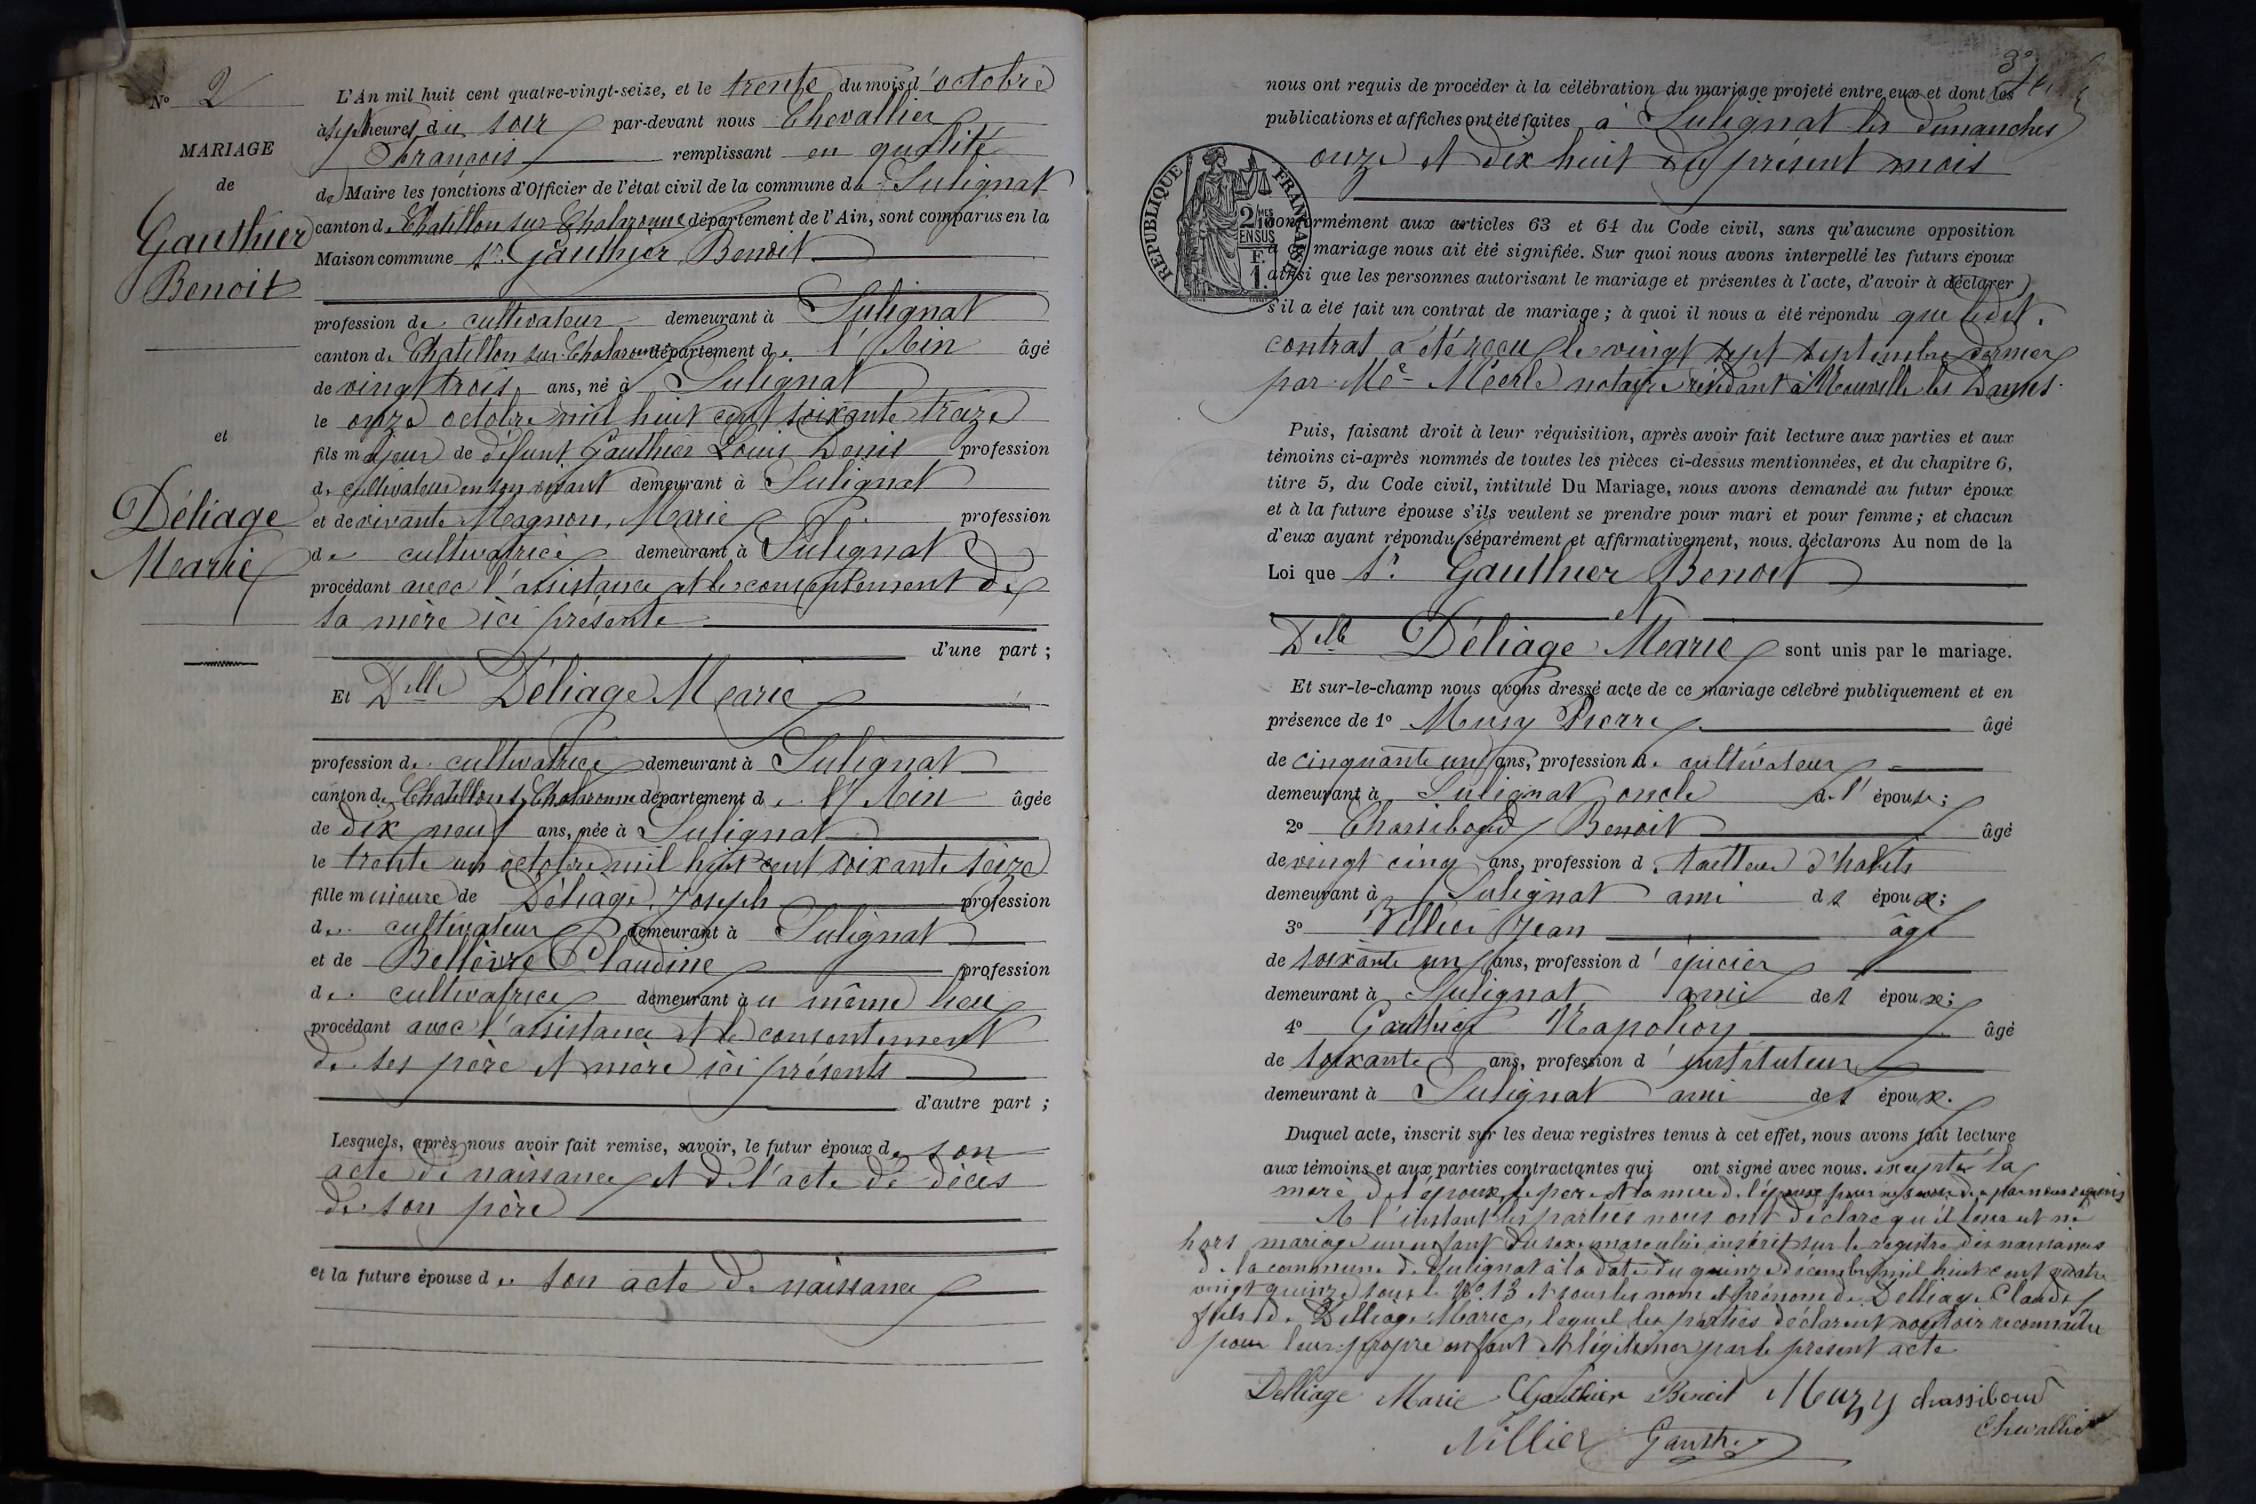 N° 2
MARIAGE
de
Gauthier
Benoit
et
Déliage
Marie
L'An mil huit cent quatre-vingt-seize, et le trente du mois d'octobre
à sept heures du soir par-devant nous Chevallier
François remplissant en qualité
de Maire les fonctions d'Officier de l'état civil de la commune de Sulignat
canton de Chatillon sur Chalaronne département de l'Ain, sont comparus en la
Maison commune Sr. Gauthier Benoit
profession de cultivateur demeurant à Sulignat
canton de Chatillon sur Chalaronne département de l'Ain âgé
de vingt trois ans, né à Sulignat
le onze octobre mil huit cent soixante treize
fils majeur de défunt Gauthier Louis Denis profession
de cultivateur en son vivant demeurant à Sulignat
et de vivante Magnon Marie profession
de cultivatrice demeurant à Sulignat
procédant avec l'assistance et le consentement de
sa mère ici présente
d'une part ;
Et Delle Déliage Marie
profession de cultivatrice demeurant à Sulignat
canton de Chatillon s/ Chalaronne département de l'Ain âgée
de dix neuf ans, née à Sulignat
le trente un octobre mil huit cent soixante seize
fille mineure de Déliage Joseph profession
de cultivateur demeurant à Sulignat
et de Bellèvre Claudine profession
de cultivatrice demeurant au même lieu
procédant avec l'assistance et le consentement
de ses père et mère ici présents
d'autre part ;
Lesquels, après nous avoir fait remise, savoir, le futur époux de son
acte de naissance et de l'acte de décès
de son père
et la future épouse de son acte de naissance
3e
nous ont requis de procéder à la célébration du mariage projeté entre eux et dont les
publications et affiches ont été faites à Sulignat les dimanches
onze et dix huit du présent mois
RÉPUBLIQUE FRANÇAISE
2/10MES
EN SUS
F.
1.
conformément aux articles 63 et 64 du Code civil, sans qu'aucune opposition
à ce mariage nous ait été signifiée. Sur quoi nous avons interpellé les futurs époux
ainsi que les personnes autorisant le mariage et présentes à l'acte, d'avoir à déclarer
s'il a été fait un contrat de mariage ; à quoi il nous a été répondu que ledit
contrat a été reçu le vingt sept septembre dernier
par Me Merle notaire résidant à Neuville les Dames.
Puis, faisant droit à leur réquisition, après avoir fait lecture aux parties et aux
témoins ci-après nommés de toutes les pièces ci-dessus mentionnées, et du chapitre 6,
titre 5, du Code civil, intitulé Du Mariage, nous avons demandé au futur époux
et à la future épouse s'ils veulent se prendre pour mari et pour femme ; et chacun
d'eux ayant répondu séparément et affirmativement, nous déclarons Au nom de la
Loi que Sr. Gauthier Benoit
et
Delle Déliage Marie sont unis par le mariage.
Et sur-le-champ nous avons dressé acte de ce mariage célébré publiquement et en
présence de 1° Musy Pierre âgé
de cinquante un ans, profession de cultivateur
demeurant à Sulignat oncle de l'épouse ;
2° Chassiboud Benoit âgé
de vingt cinq ans, profession de tailleur d'habits
demeurant à Sulignat ami des époux ;
3° Villier Jean âgé
de soixante un ans, profession d'épicier
demeurant à Sulignat ami des époux ;
4° Gauthier Napoléon âgé
de soixante ans, profession d'instituteur
demeurant à Sulignat ami des époux.
Duquel acte, inscrit sur les deux registres tenus à cet effet, nous avons fait lecture
aux témoins et aux parties contractantes qui ont signé avec nous. excepté la
mère de l'époux, le père et la mère de l'épouse pour ne savoir de ce par nous requis
A l'instant les parties nous ont déclaré qu'il leur est né
hors mariage un enfant du sexe masculin inscrit sur le registre des naissances
de la commune de Sulignat à la date du quinze décembre mil huit cent quatre
vingt quinze sous le N° 13 et sous les nom et prénom de Delliage Claude
fils de Delliage Marie, lequel les parties déclarent vouloir reconnaître
pour leur propre enfant et légitimer par le présent acte
Delliage Marie Gauthier Benoit Muzy chassiboud
Villier Gauth. Chevallier